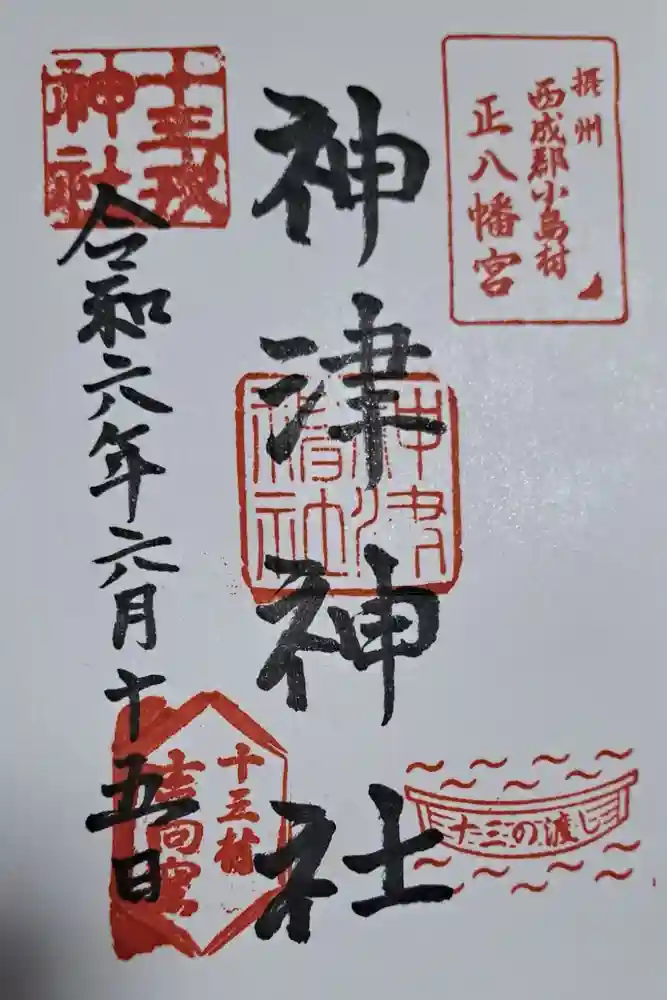 摂州
西成郡小島村
正八幡宮
神津神社
神津神社
十三の渡し
神社
令和六年六月十五日
十三村